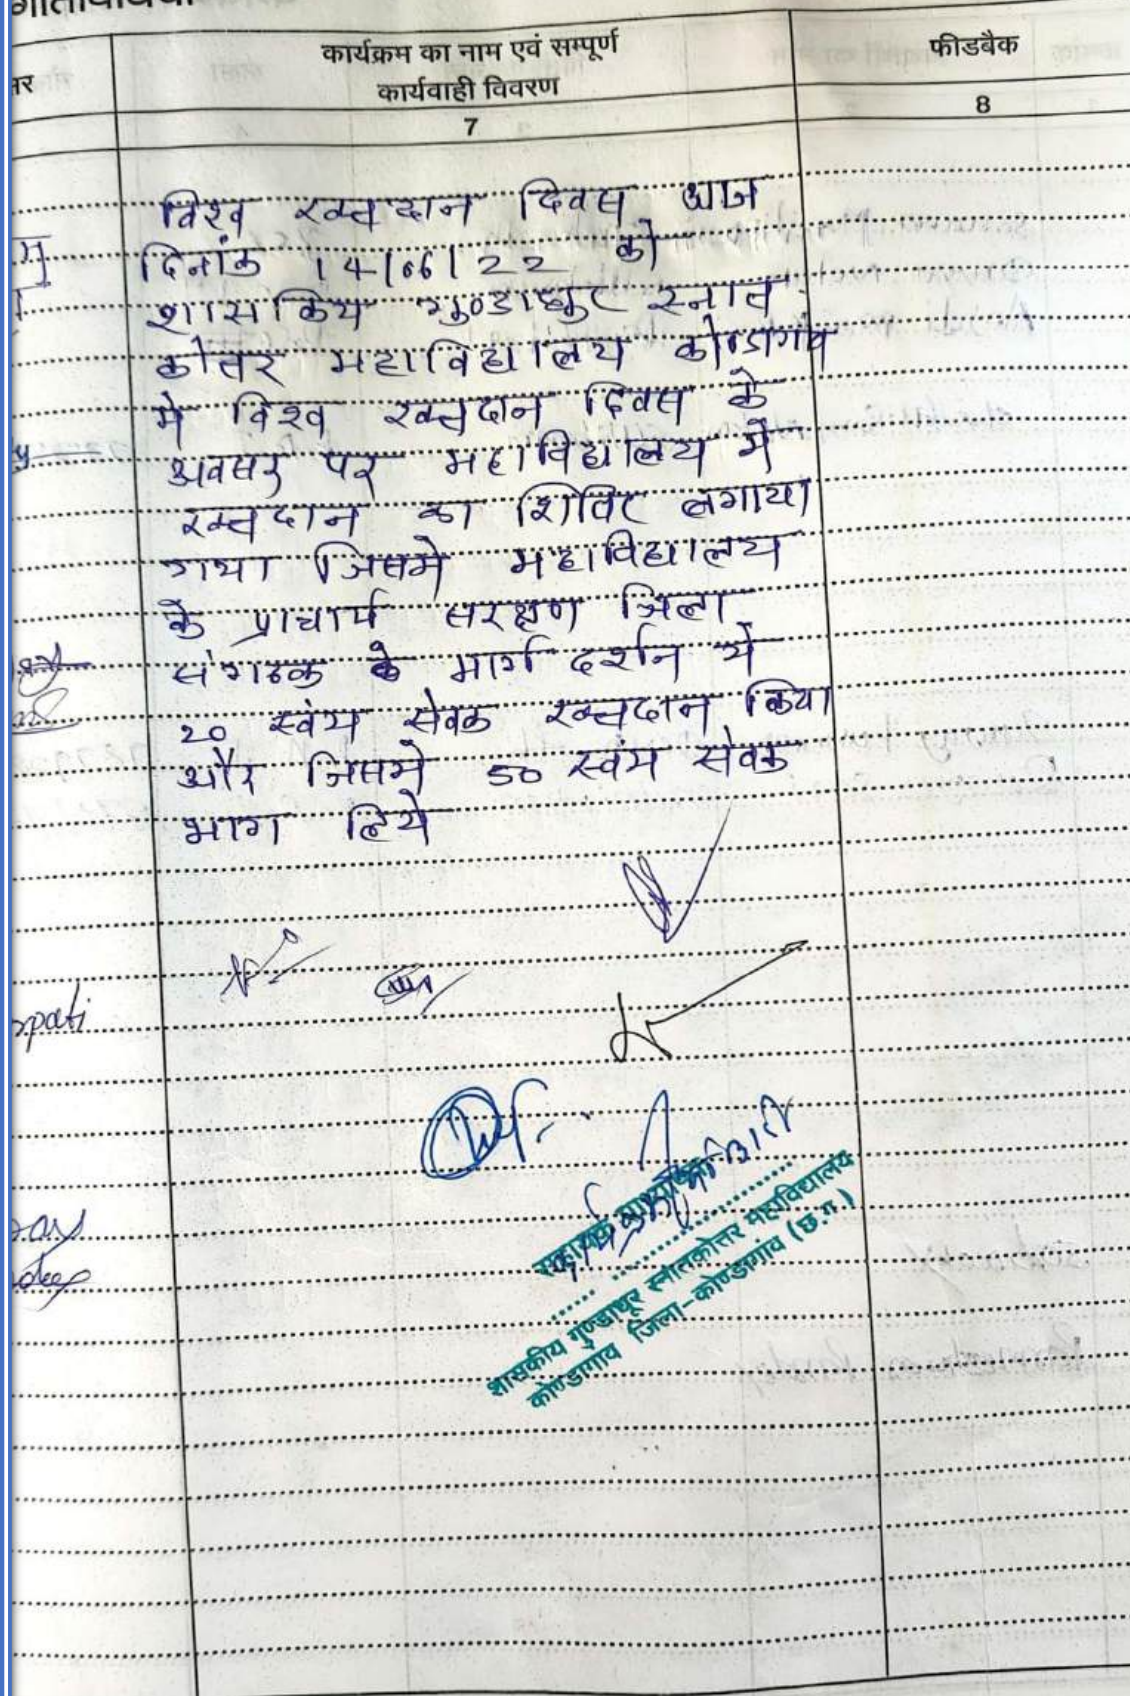 कार्यक्रम का नाम एवं सम्पूर्ण
कार्यवाही विवरण
फीडबैक
7
8
विश्व रक्तदान दिवस आज
दिनांक 14/06/22 को
शासकिय गुण्डाधुर स्नात
कोत्तर महाविद्यालय कोण्डागांव
मे विश्व रक्तदान दिवस के
अवसर पर महाविद्यालय में
रक्तदान का शिविर लगाया
गया जिसमे महाविद्यालय
के प्राचार्य सरक्षण जिला
संगठक के मार्ग दर्शन मे
20 स्वंय सेवक रक्तदान किया
और जिसमे 50 स्वंम सेवक
भाग लिये
pati
शासकीय गुण्डाधूर स्नातकोत्तर महाविद्यालय
कोण्डागांव जिला-कोण्डागांव (छ.ग.)